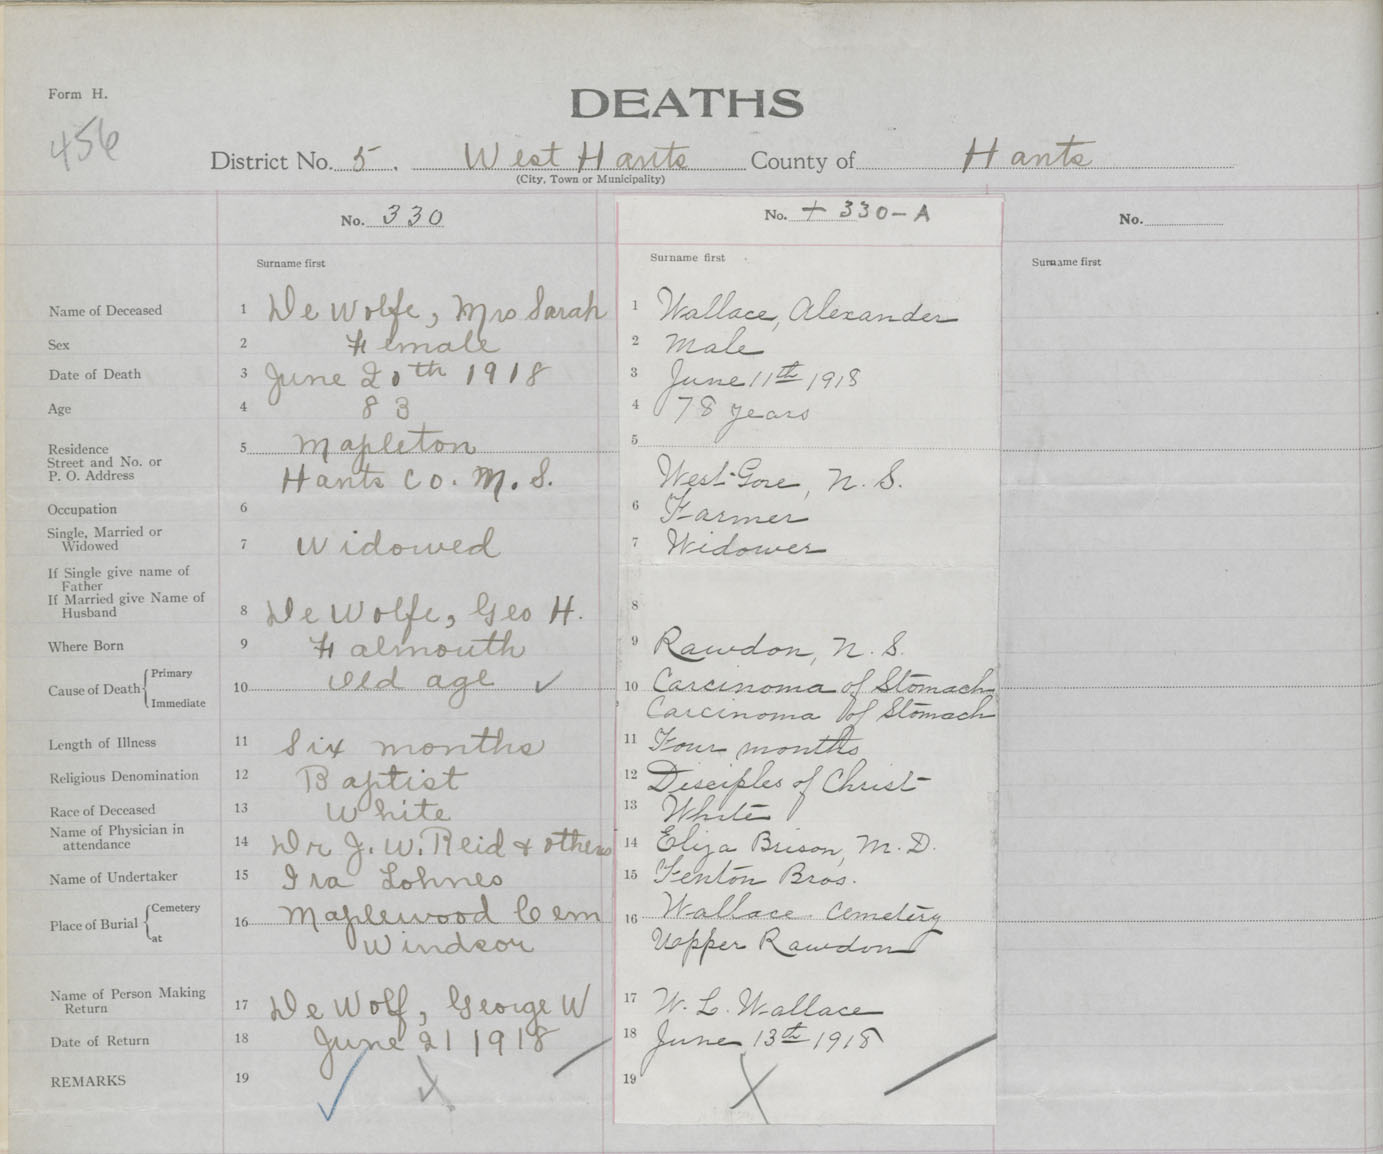 Form H.
DEATHS
456
District No. 5. West Hants County of Hants
(City, Town or Municipality)
No. 330
Surname first
Name of Deceased 1 De Wolfe, Mrs Sarah
Sex 2 Female
Date of Death 3 June 20th 1918
Age 4 83
Residence 5 Mapleton
Street and No. or
P. O. Address Hants Co. N. S.
Occupation 6
Single, Married or
Widowed 7 Widowed
If Single give name of
Father
If Married give Name of
Husband 8 De Wolfe, Geo H.
Where Born 9 Falmouth
Cause of Death Primary 10 Old age ✓
Immediate
Length of Illness 11 Six months
Religious Denomination 12 Baptist
Race of Deceased 13 White
Name of Physician in
attendance 14 Dr J. W. Reid & others
Name of Undertaker 15 Ira Lohnes
Place of Burial Cemetery 16 Maplewood Cem
at Windsor
Name of Person Making
Return 17 De Wolf, George W
Date of Return 18 June 21 1918
REMARKS 19
No. + 330-A
Surname first
1 Wallace, Alexander
2 Male
3 June 11th 1918
4 78 years
5
West Gore, N. S.
6 Farmer
7 Widower
8
9 Rawdon, N. S.
10 Carcinoma of Stomach
Carcinoma of Stomach
11 Four months
12 Disciples of Christ
13 White
14 Eliza Brison, M. D.
15 Fenton Bros.
16 Wallace Cemetery
Upper Rawdon
17 W. L. Wallace
18 June 13th 1918
19
No.
Surname first